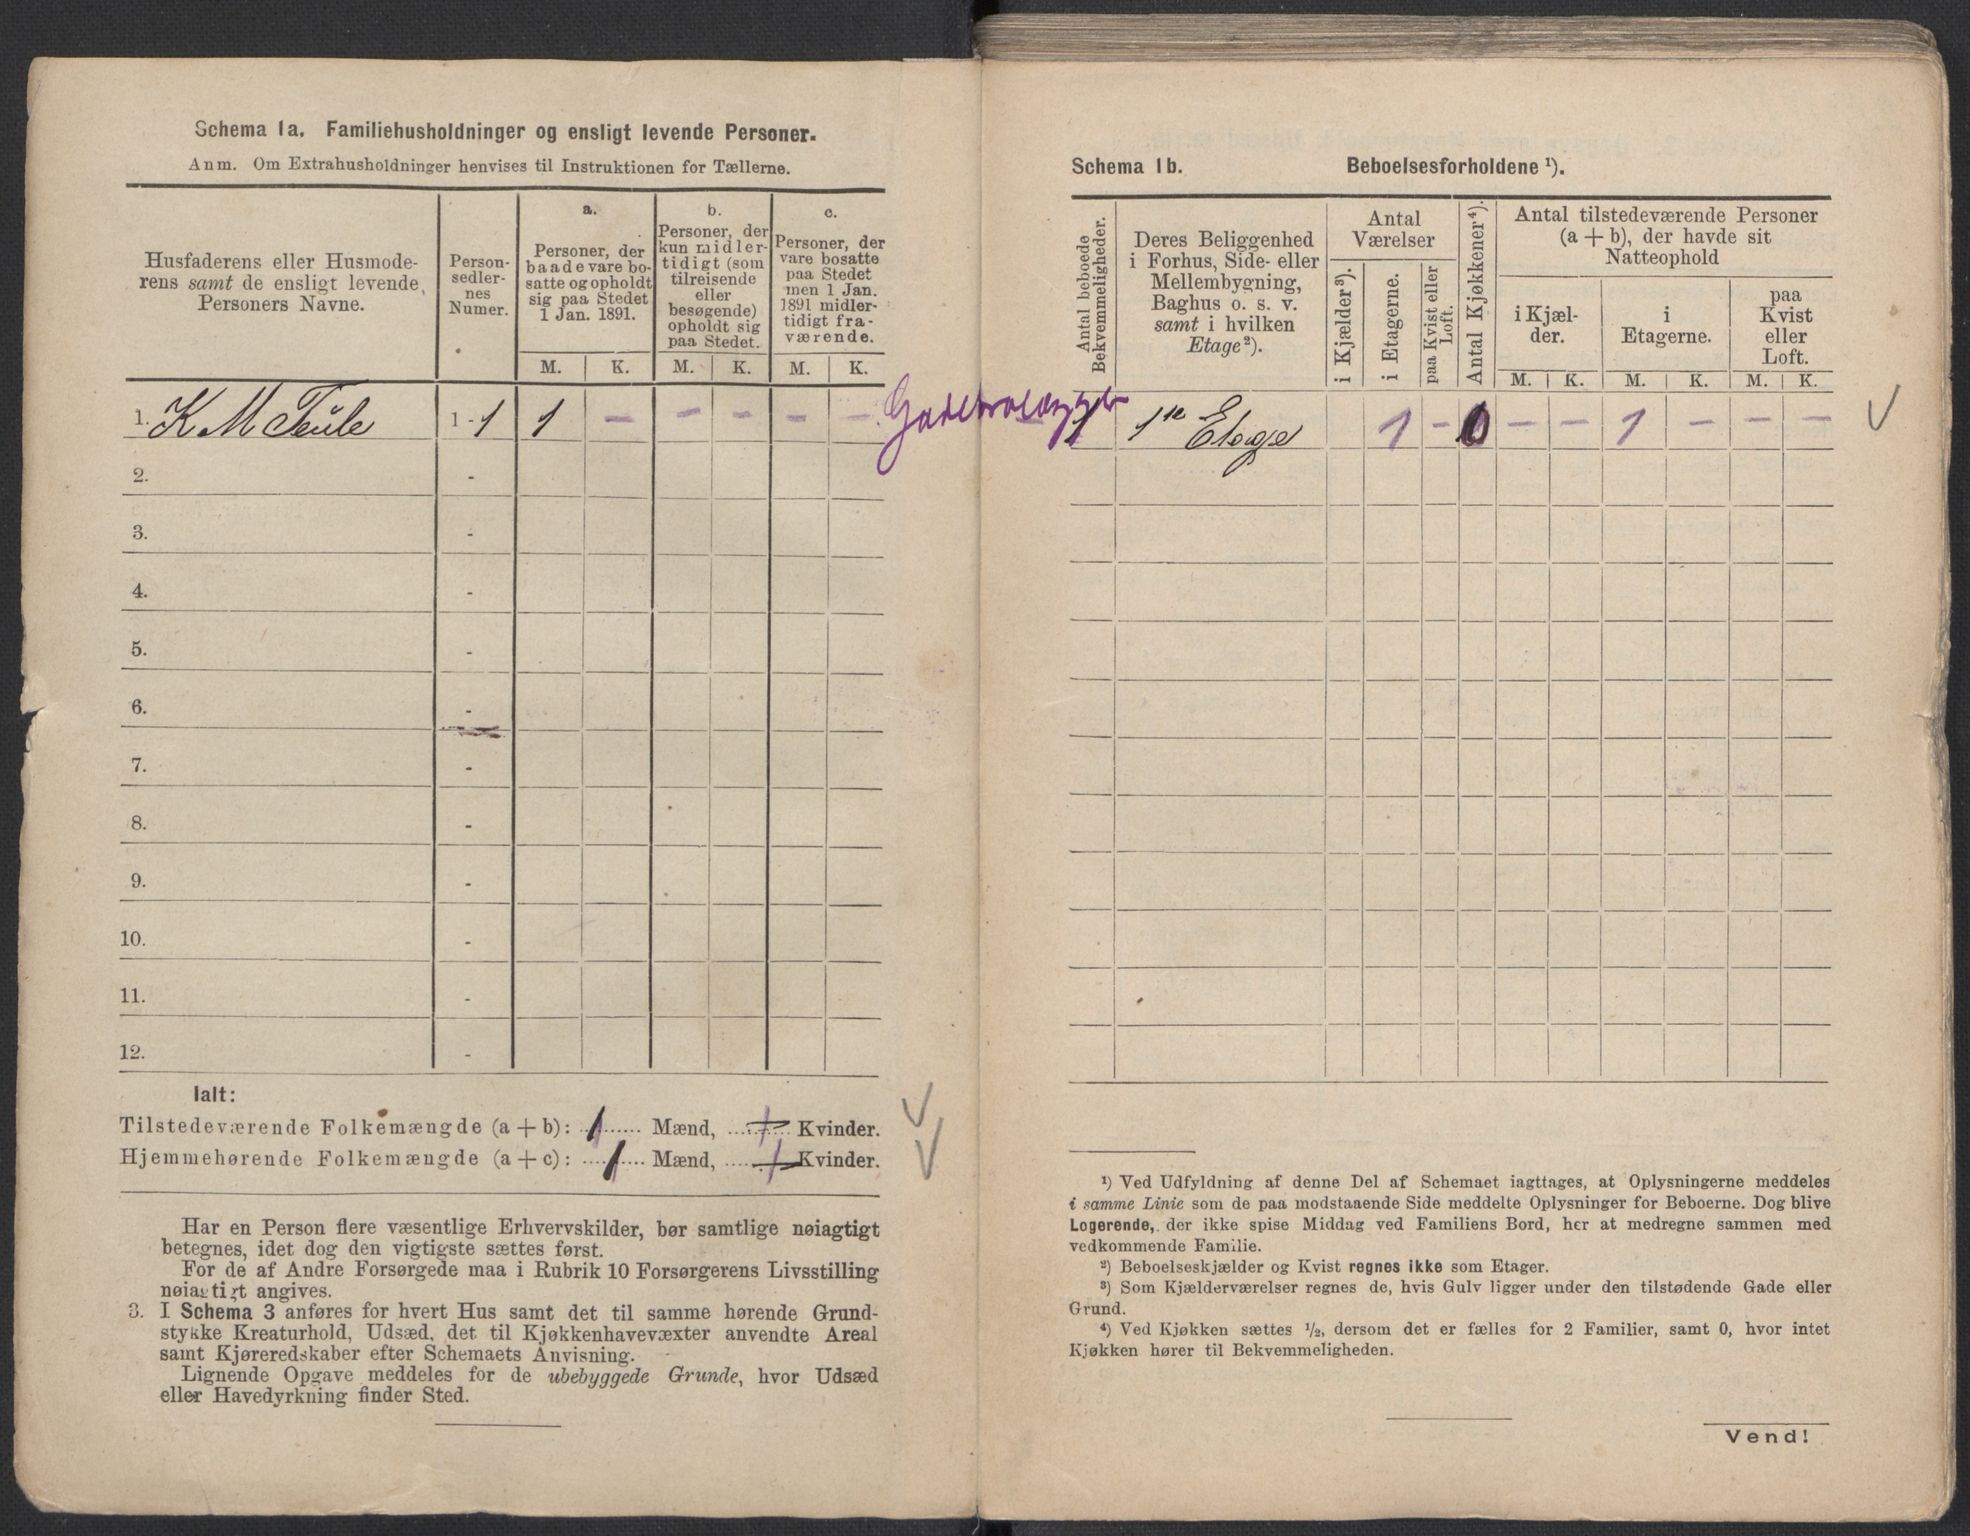 Schema 1a. Familiehusholdninger og ensligt levende Personer.
Anm. Om Extrahusholdninger henvises til Instruktionen for Tællerne.
Husfaderens eller Husmode-
rens samt de ensligt levende
Personers Navne.
Person-
sedler-
nes
Numer.
a.
Personer, der
baade vare bo-
satte og opholdt
sig paa Stedet
1 Jan. 1891.
b.
Personer, der
kun midler-
tidigt (som
tilreisende
eller
besøgende)
opholdt sig
paa Stedet.
c.
Personer, der
vare bosatte
paa Stedet
men 1 Jan.
1891 midler-
tidigt fra-
værende.
M. K. M. K. M. K.
1. K M 1 - 1 1 - - - - -
2. -
3. -
4. -
5. -
6. -
7. -
8. -
9. -
10. -
11. -
12. -
Ialt:
Tilstedeværende Folkemængde (a + b): 1 Mænd, Kvinder.
Hjemmehørende Folkemængde (a + c): 1 Mænd, Kvinder.
Har en Person flere væsentlige Erhvervskilder, bør samtlige nøiagtigt
betegnes, idet dog den vigtigste sættes først.
For de af Andre Forsørgede maa i Rubrik 10 Forsørgerens Livsstilling
nøiagtigt angives.
3. I Schema 3 anføres for hvert Hus samt det til samme hørende Grund-
stykke Kreaturhold, Udsæd, det til Kjøkkenhavevæxter anvendte Areal
samt Kjøreredskaber efter Schemaets Anvisning.
Lignende Opgave meddeles for de ubebyggede Grunde, hvor Udsæd
eller Havedyrkning finder Sted.
Schema 1b. Beboelsesforholdene ¹).
Antal beboede
Bekvemmeligheder.
Deres Beliggenhed
i Forhus, Side- eller
Mellembygning,
Baghus o. s. v.
samt i hvilken
Etage²).
Antal
Værelser
i Kjælder³).
i Etagerne.
paa Kvist eller
Loft.
Antal Kjøkkener⁴).
Antal tilstedeværende Personer
(a + b), der havde sit
Natteophold
i Kjæl-
der.
i
Etagerne.
paa
Kvist
eller
Loft.
M. K. M. K. M. K.
1 1ste Etage 1 - 0 - - 1 - - -
¹) Ved Udfyldning af denne Del af Schemaet iagttages, at Oplysningerne meddeles
i samme Linie som de paa modstaaende Side meddelte Oplysninger for Beboerne. Dog blive
Logerende, der ikke spise Middag ved Familiens Bord, her at medregne sammen med
vedkommende Familie.
²) Beboelseskjælder og Kvist regnes ikke som Etager.
³) Som Kjælderværelser regnes de, hvis Gulv ligger under den tilstødende Gade eller
Grund.
⁴) Ved Kjøkken sættes ½, dersom det er fælles for 2 Familier, samt 0, hvor intet
Kjøkken hører til Bekvemmeligheden.
Vend!